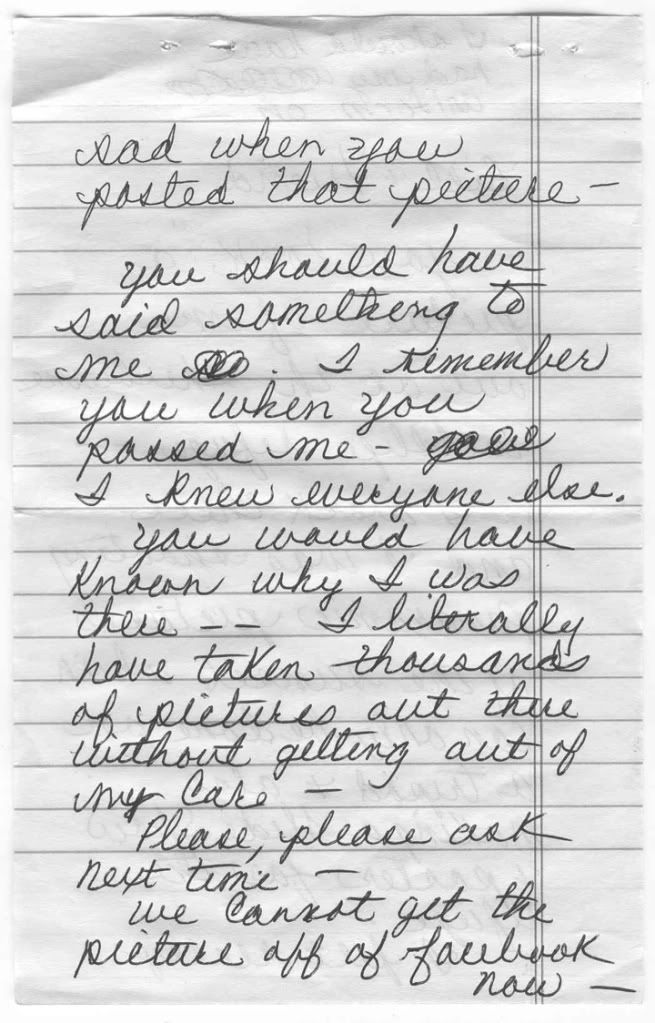 sad when you
posted that picture –
you should have
said something to
me . I remember
you when you
passed me –
I knew everyone else.
you would have
known why I was
there – – I literally
have taken thousands
of pictures out there
without getting out of
my Care –
Please, please ask
next time –
we cannot get the
picture off of facebook
now –